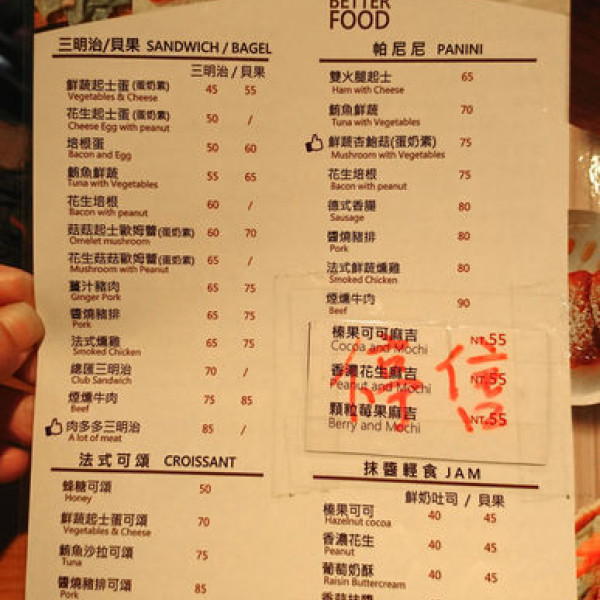 BETTER
FOOD
三明治/貝果 SANDWICH / BAGEL
三明治 / 貝果
鮮蔬起士蛋(蛋奶素) 45 55
Vegetables & Cheese
花生起士蛋(蛋奶素) 50 /
Cheese Egg with peanut
培根蛋 50 60
Bacon and Egg
鮪魚鮮蔬 55 65
Tuna with Vegetables
花生培根 60 /
Bacon with peanut
菇菇起士歐姆蕾(蛋奶素) 60 70
Omelet mushroom
花生菇菇歐姆蕾(蛋奶素) 65 /
Mushroom with Peanut
薑汁豬肉 65 75
Ginger Pork
醬燒豬排 65 75
Pork
法式燻雞 65 75
Smoked Chicken
總匯三明治 70 /
Club Sandwich
煙燻牛肉 75 85
Beef
肉多多三明治 85 /
A lot of meat
法式可頌 CROISSANT
蜂糖可頌 50
Honey
鮮蔬起士蛋可頌 70
Vegetables & Cheese
鮪魚沙拉可頌 75
Tuna
醬燒豬排可頌 85
Pork
帕尼尼 PANINI
雙火腿起士 65
Ham with Cheese
鮪魚鮮蔬 70
Tuna with Vegetables
鮮蔬杏鮑菇(蛋奶素) 75
Mushroom with Vegetables
花生培根 75
Bacon with peanut
德式香腸 80
Sausage
醬燒豬排 80
Pork
法式鮮蔬燻雞 80
Smoked Chicken
煙燻牛肉 90
Beef
榛果可可麻吉 NT.55
Cocoa and Mochi
香濃花生麻吉 NT.55
Peanut and Mochi
顆粒莓果麻吉 NT.55
Berry and Mochi
抹醬輕食 JAM
鮮奶吐司 / 貝果
榛果可可 40 45
Hazelnut cocoa
香濃花生 40 45
Peanut
葡萄奶酥 40 45
Raisin Buttercream
香蒜抹醬 40 45